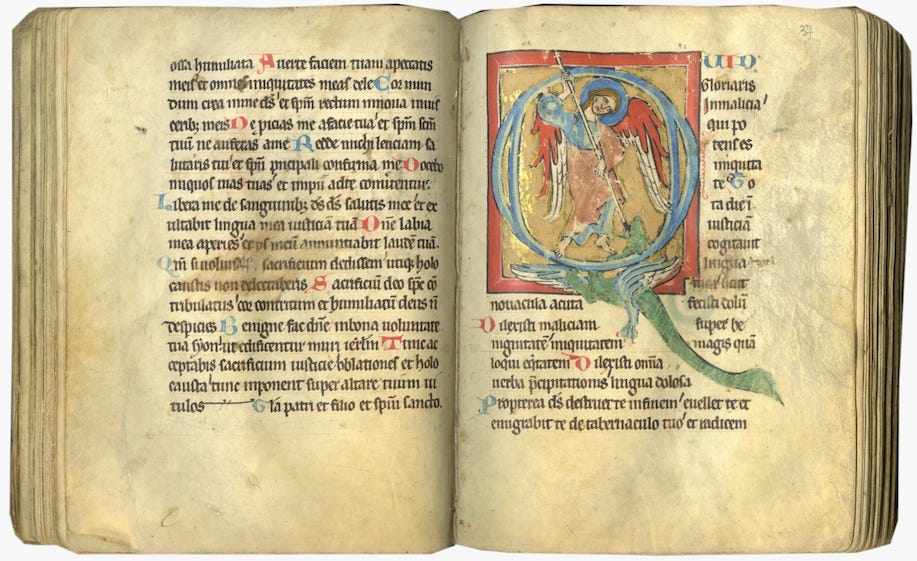 ossa humiliata Auerte faciem tuam apeccatis
meis et omnes iniquitates meas dele Cor mun
dum crea inme ds et spm rectum innoua inuis
ceribz meis Ne picias me afacie tua et spm scm
tuum ne auferas ame Redde michi leticiam sa
lutaris tui et spu pncipali confirma me Docebo
iniquos uias tuas et impii adte conuertentur
Libera me de sanguinibz ds ds salutis mee et ex
ultabit lingua mea iusticiam tua Dne labia
mea aperies et os meum annuntiabit laude tua
Qm si uoluisses sacrificium dedissem utiqz holo
caustis non delectaberis Sacrificiu deo sps co
tribulatus cor contritum et humiliatu deus n
despicies Benigne fac dne inbona uoluntate
tua syon ut edificentur muri ierlm Tunc ac
ceptabis sacrificium iusticie oblationes et holo
causta tunc imponent super altare tuum ui
tulos Gla patri et filio et spui sancto.
37
QUID
Gloriaris
Inmalicia
qui po
tens es
iniquita
te To
ta die i
iusticia
cogitauit
lingua
tua sicut
nouacula acuta fecisti dolu
Dilexisti maliciam super be
nignitate iniquitatem magis qua
loqui eqtatem Dilexisti omnia
uerba pcipitationis lingua dolosa
Propterea ds destruet te infinem euellet te et
emigrabit te de tabernaculo tuo et radicem